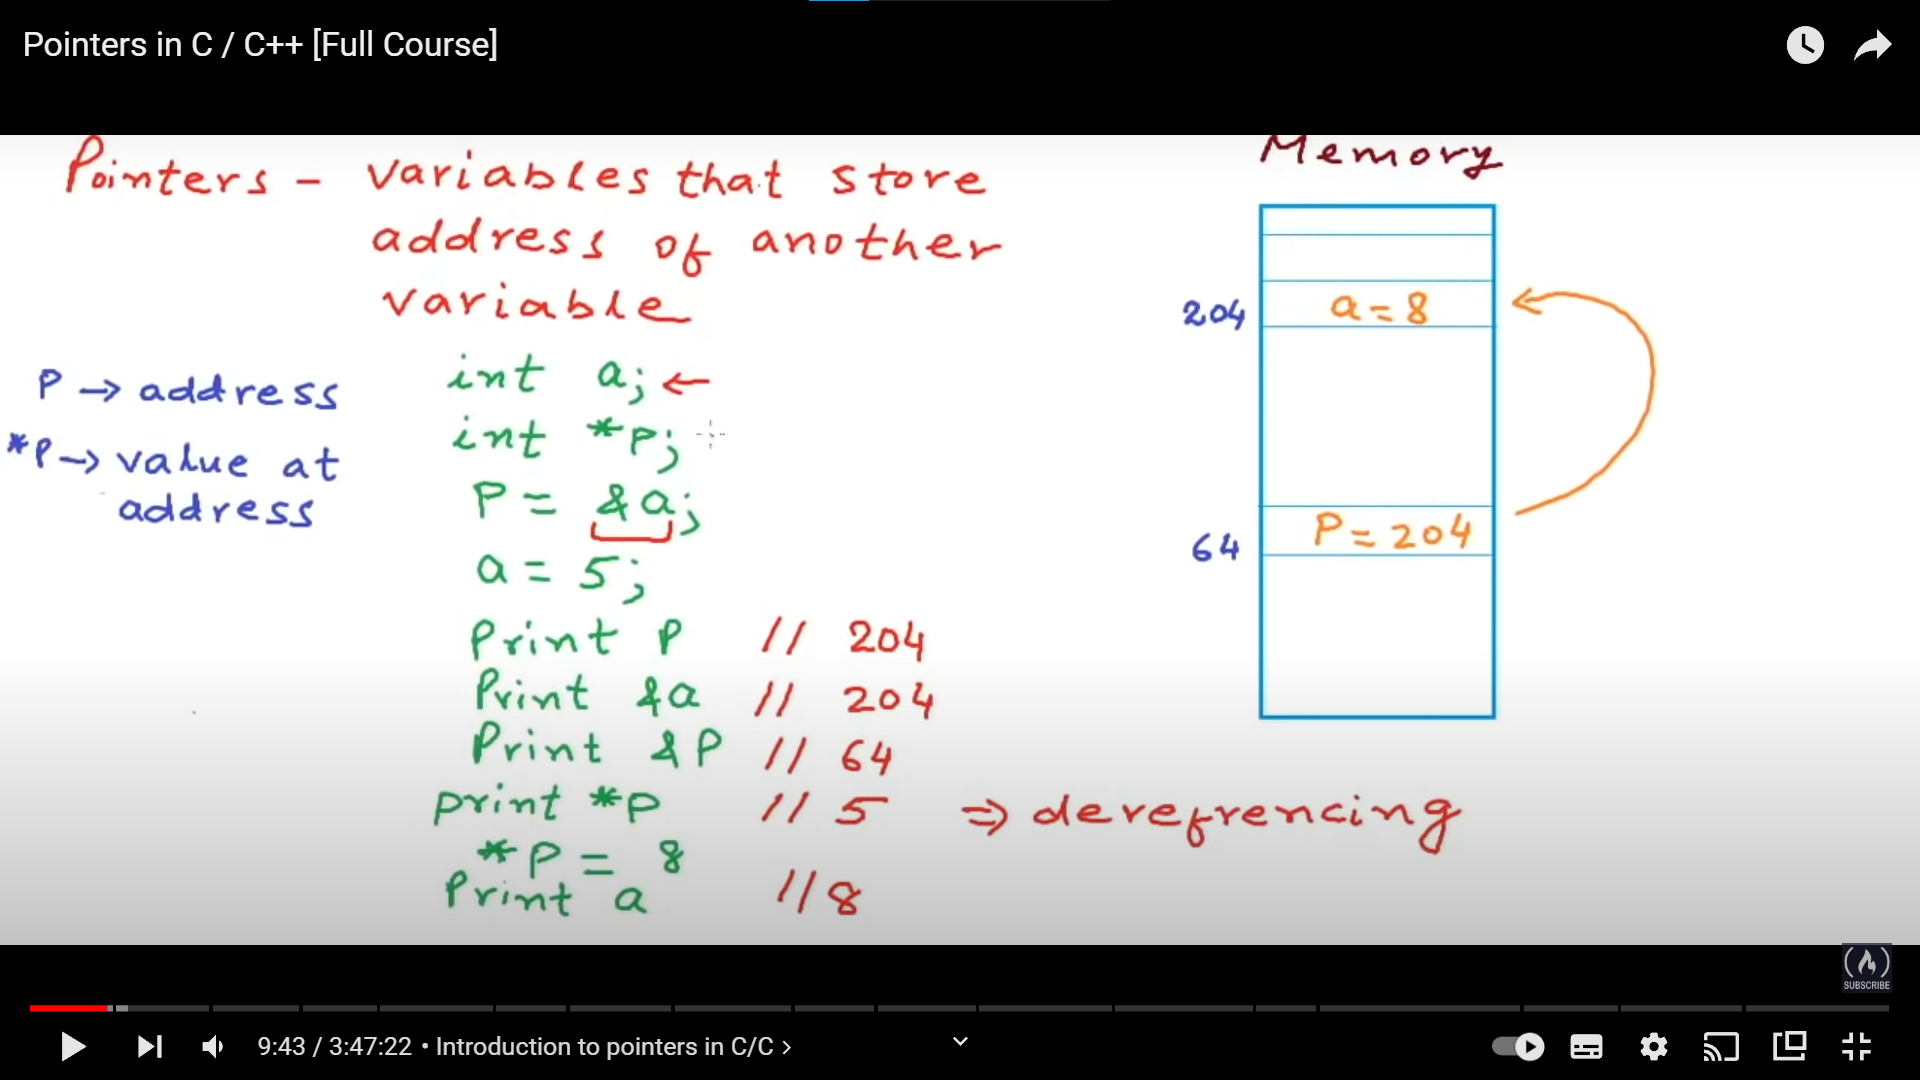 Pointers in C / C++ [Full Course]
Pointers - variables that store
address of another
variable
P → address
*P → value at
address
int a; ←
int *P;
P = &a;
a = 5;
Print P // 204
Print &a // 204
Print &P // 64
print *P // 5 ⇒ derefrencing
*P = 8
Print a // 8
Memory
204 a = 8
64 P = 204
SUBSCRIBE
9:43 / 3:47:22 • Introduction to pointers in C/C >